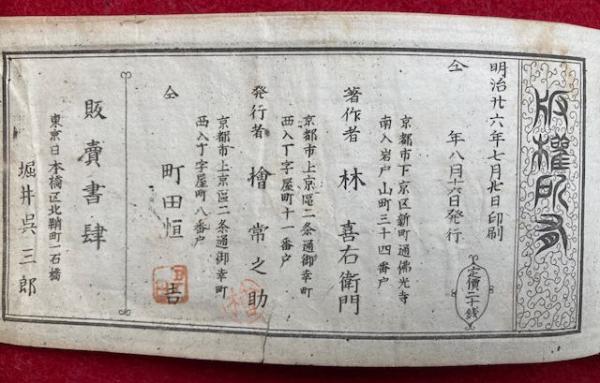 版權所有
明治廿六年七月廿日印刷
仝年八月六日発行
定價二十銭
京都市下京區新町通佛光寺
南入岩戸山町三十四番戸
著作者 林喜右衛門
京都市上京區二条通御幸町
西入丁字屋町十一番戸
発行者 檜常之助
京都市上京區二条通御幸町
西入丁字屋町八番戸
仝 町田恒吉
販賣書肆
東京日本橋區北鞘町一石橋
堀井呉三郎